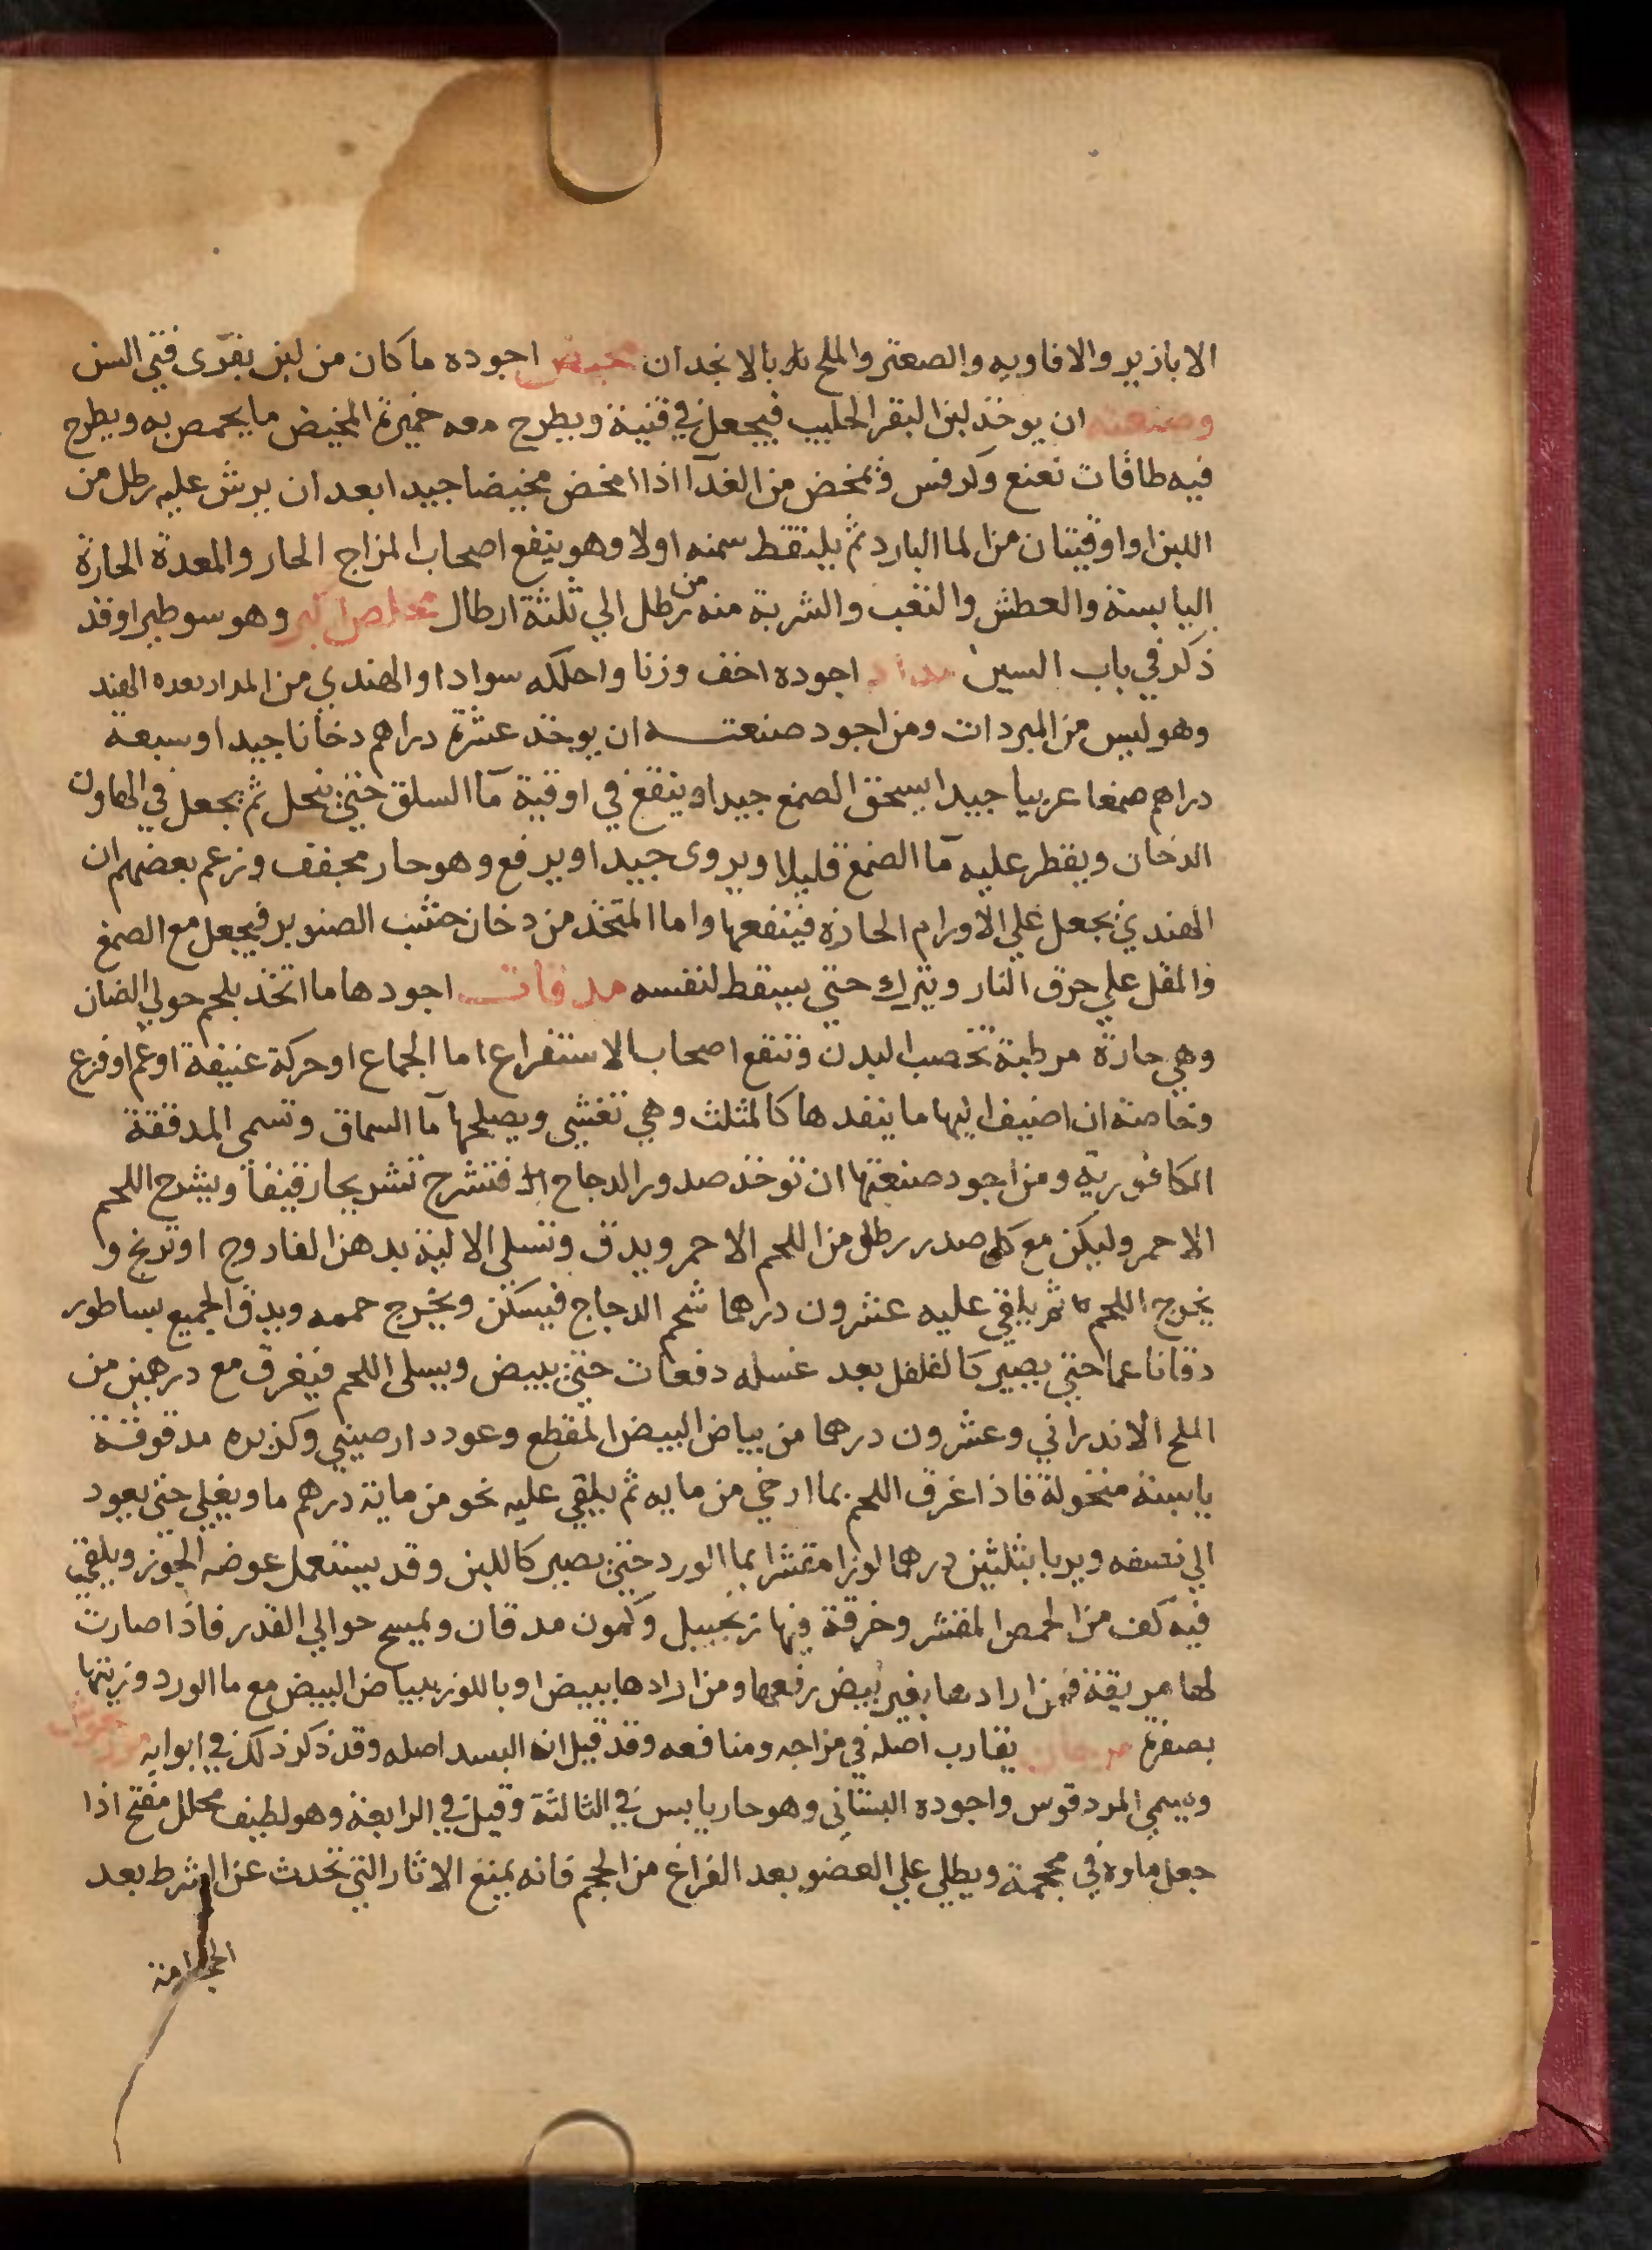 الابازير والافاويه والصعتر والملح لا بالانجدان مخيض اجوده ما كان من لبن بقرى فتي السن
وصنعته ان يوخذ لبن البقر الحليب فيجعل في قنينة ويطرح معه خميرة المخيض ما يحمص به ويطرح
فيه طاقات نعنع وكرفس ويمخض من الغد اذا امخض مخيضا جيدا بعد ان يرش عليه رطل من
اللبن اواوقيتان من الما البارد ثم يلتقط سمنه اولا وهو ينفع اصحاب المزاج الحار والمعدة الحارة
اليابسة والعطش والتعب والشربة منه من رطل الي ثلثة ارطال مخلص اكبر وهو سوطيرا وقد
ذكر في باب السين مداد اجوده اخف وزنا واحلكه سوادا والهندي من المداد بعده الهند
وهو ليس من المبردات ومن اجود صنعته ان يوخذ عشرة دراهم دخانا جيدا وسبعة
دراهم صمغا عربيا جيدا يسحق الصمغ جيدا وينقع في اوقية مآ السلق حتي ينحل ثم يجعل في الهاون
الدخان ويقطر عليه مآ الصمغ قليلا ويروى جيدا ويرفع وهو حار مجفف وزعم بعضهم ان
الهندي يجعل علي الاورام الحارة فينفعها واما المتخذ من دخان خشب الصنوبر فيجعل مع الصمغ
والمقل علي حرق النار ويترك حتي يسقط لنفسه مدققات اجودها ما اتخذ بلحم حولي الضان
وهي حارة مرطبة تخصب البدن وتنفع اصحاب الاستفراع اما الجماع اوحركة عنيفة اوغم اوفزع
وخاصة ان اضيف اليها ما ينفدها كالمثلث وهي تغشي ويصلحها مآ السماق وتسمى المدققة
الكافورية ومن اجود صنعتها ان توخذ صدور الدجاج فتشرح تشريحا رقيقا ويشرح اللحم
الاحمر وليكن مع كل صدر رطل من اللحم الاحمر ويدق وتسلى الالية بدهن الفاروج اوترنج و
يخرج اللحم ثم يلقي عليه عشرون درهما شحم الدجاج فيسكن ويخرج حممه ويدق الجميع بساطور
دقا ناعما حتي يصير كالفلفل بعد غسله دفعات حتي يبيض ويسلى اللحم فيغرق مع درهمين من
الملح الاندراني وعشرون درهما من بياض البيض المقطع وعود دارصيني وكزبره مدقوقة
يابسة منخولة فاذا غرق اللحم بما ارخي من مايه ثم يلقي عليه نحو من ماية درهم ما ويغلي حتي يعود
الي نصفه ويربا بثلثين درهما لوزا مقشرا بما الورد حتي يصير كاللبن وقد يستعمل عوضه الجوز ويلقي
فيه كف من الحمص المقشر وخرقة فيها زنجبيل وكمون مدقان ويمسح حوالي القدر فاذا صارت
لها مريقة فمن ارادها بغير بيض رفعها ومن ارادها ببيض اوباللوز ببياض البيض مع ما الورد وزينها
بصفرة مرجان يقارب اصله في مزاجه ومنافعه وقد قيل انه البسد اصله وقد ذكر ذلك في ابوابه مردقوش
ويسمي المردقوس واجوده البستاني وهو حار يابس في الثالثة وقيل في الرابعة وهو لطيف محلل مفتح اذا
جعل ماوه في محجمة ويطلي علي العضو بعد الفراغ من الحجم فانه يمنع الاثار التي تحدث عن الشرط بعد
الحجامة